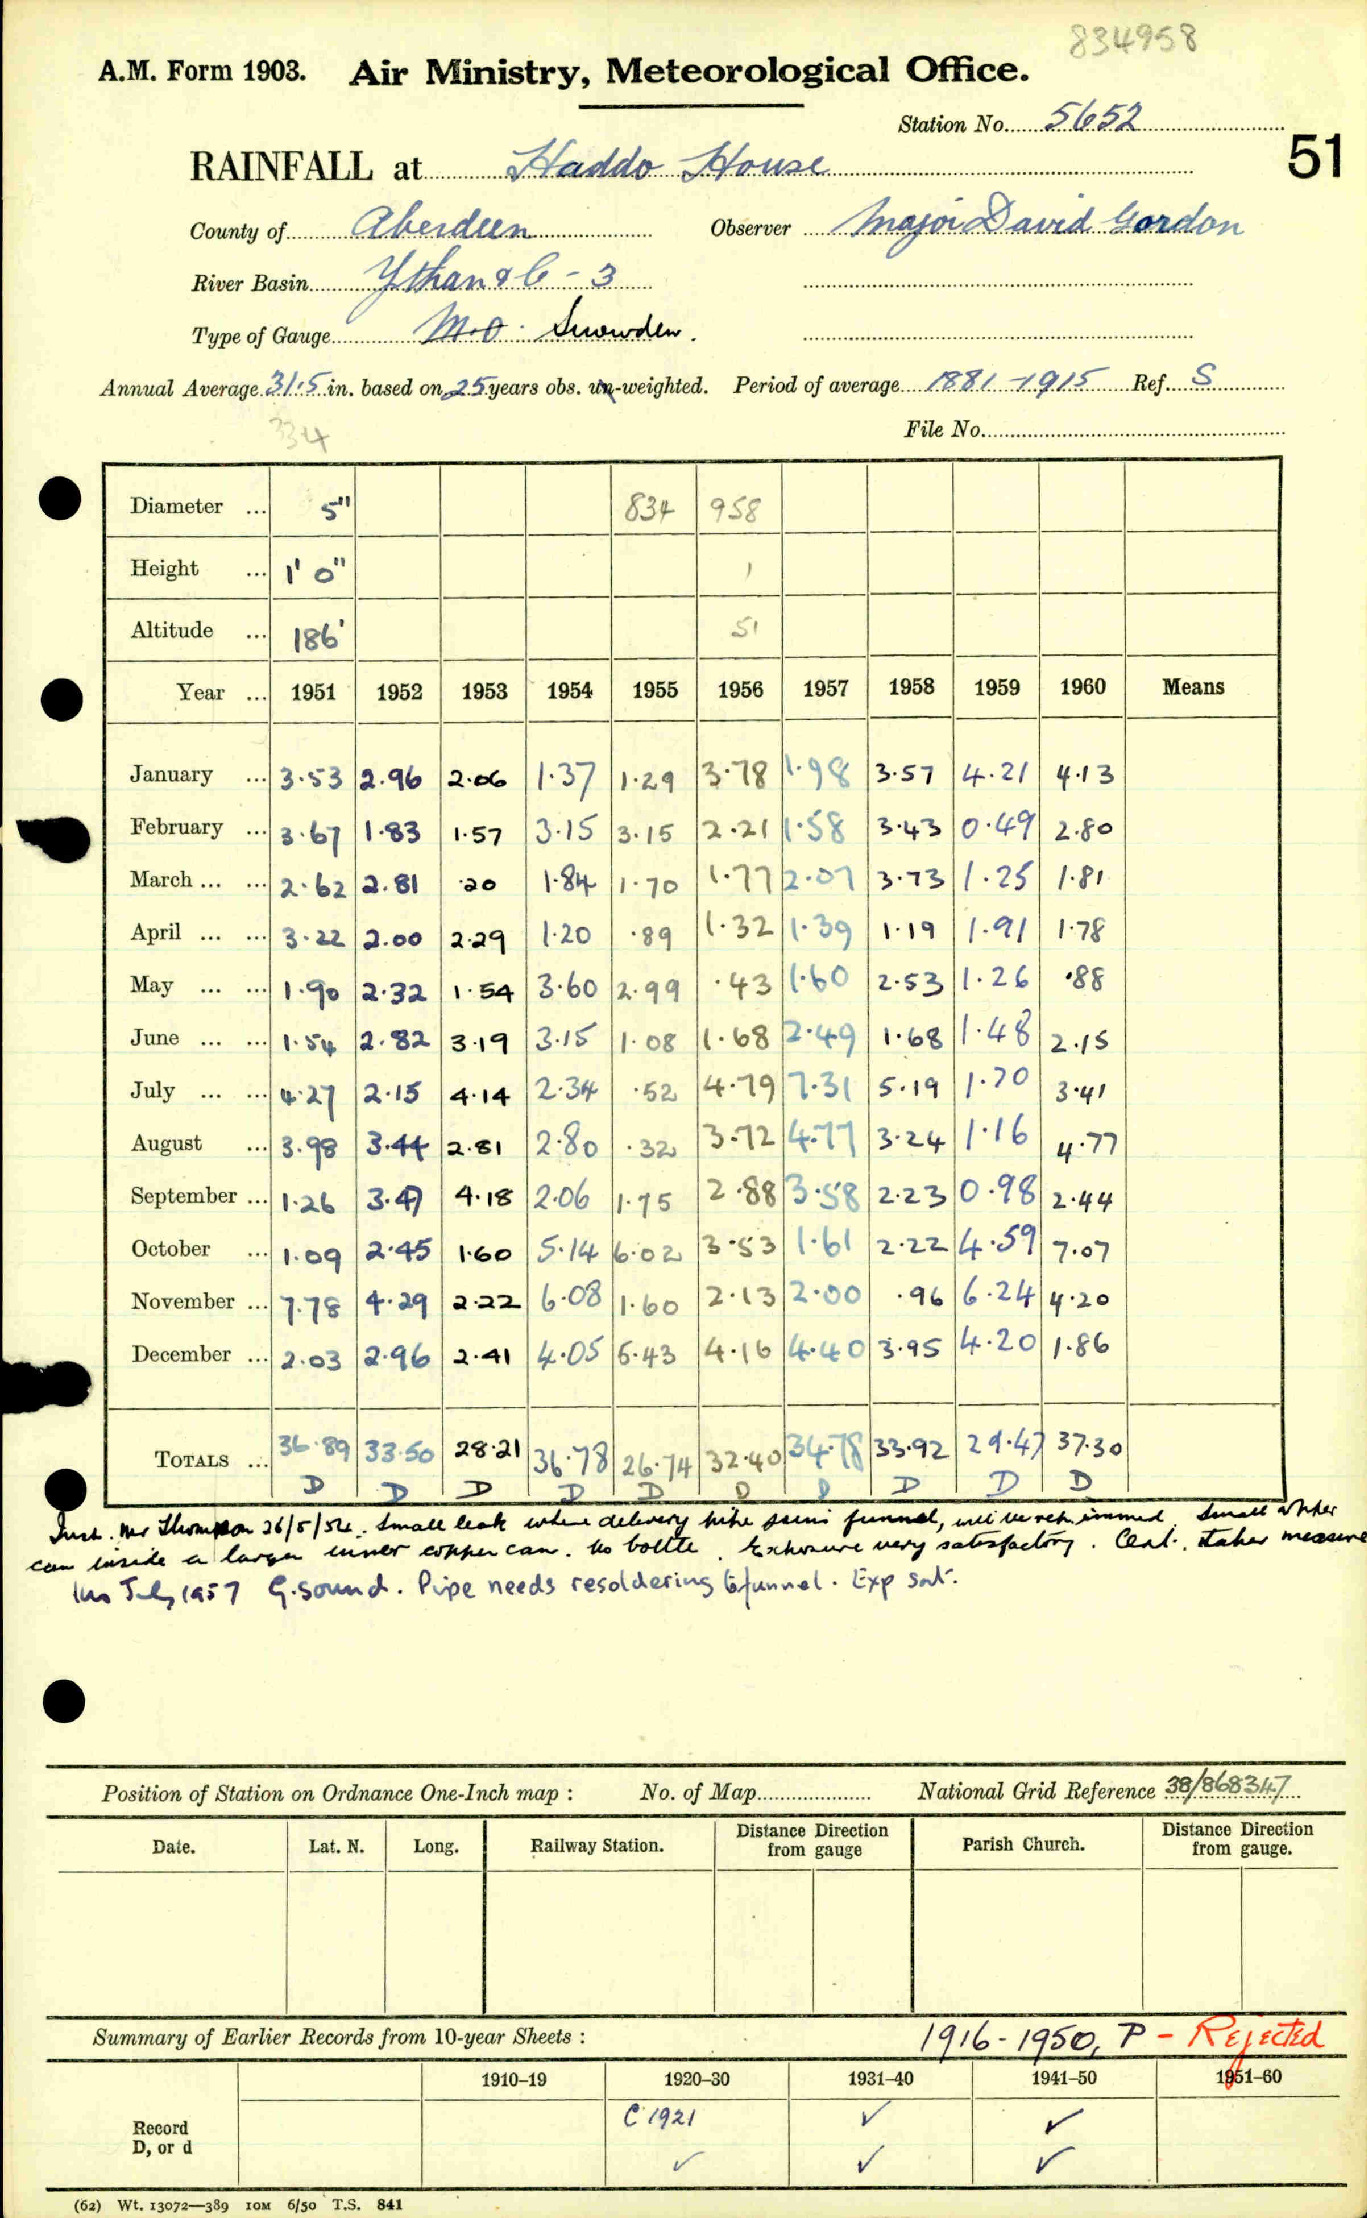 834958
A.M. Form 1903. Air Ministry, Meteorological Office.
Station No. 5652
51
RAINFALL at Haddo House
County of Aberdeen Observer Major David Gordon
River Basin Ythan & C - 3
Type of Gauge M.O. Snowdon.
Annual Average 31.5 in. based on 25 years obs. un-weighted. Period of average 1881-1915 Ref. S
334
File No.
Diameter ... 5" 834 958
Height ... 1' 0" 1
Altitude ... 186' 51
Year ... 1951 1952 1953 1954 1955 1956 1957 1958 1959 1960 Means
January ... 3.53 2.96 2.06 1.37 1.29 3.78 1.98 3.57 4.21 4.13
February ... 3.67 1.83 1.57 3.15 3.15 2.21 1.58 3.43 0.49 2.80
March ... ... 2.62 2.81 .20 1.84 1.70 1.77 2.07 3.73 1.25 1.81
April ... ... 3.22 2.00 2.29 1.20 .89 1.32 1.39 1.19 1.91 1.78
May ... ... 1.90 2.32 1.54 3.60 2.99 .43 1.60 2.53 1.26 .88
June ... ... 1.54 2.82 3.19 3.15 1.08 1.68 2.49 1.68 1.48 2.15
July ... ... 4.27 2.15 4.14 2.34 .52 4.79 7.31 5.19 1.70 3.41
August ... 3.98 3.44 2.81 2.80 .32 3.72 4.77 3.24 1.16 4.77
September ... 1.26 3.47 4.18 2.06 1.75 2.88 3.58 2.23 0.98 2.44
October ... 1.09 2.45 1.60 5.14 6.02 3.53 1.61 2.22 4.59 7.07
November ... 7.78 4.29 2.22 6.08 1.60 2.13 2.00 .96 6.24 4.20
December ... 2.03 2.96 2.41 4.05 5.43 4.16 4.40 3.95 4.20 1.86
TOTALS ... 36.89 33.50 28.21 36.78 26.74 32.40 34.78 33.92 29.47 37.30
D D D D D D D D D D
Inst. Mr Thompson 26/5/54. Small leak where delivery pipe joins funnel, will be rep. immed. Small copper
can inside a larger inner copper can. No bottle. Exposure very satisfactory. Cert. taper measure
Ins July 1957 G. sound. Pipe needs resoldering to funnel. Exp sat.
Position of Station on Ordnance One-Inch map : No. of Map National Grid Reference 38/868347
Date. Lat. N. Long. Railway Station. Distance Direction from gauge Parish Church. Distance Direction from gauge.
Summary of Earlier Records from 10-year Sheets : 1916-1950, P - Rejected
1910–19 1920–30 1931–40 1941–50 1951–60
Record C 1921 ✓ ✓
D, or d ✓ ✓ ✓
(62) Wt. 13072—389 10M 6/50 T.S. 841